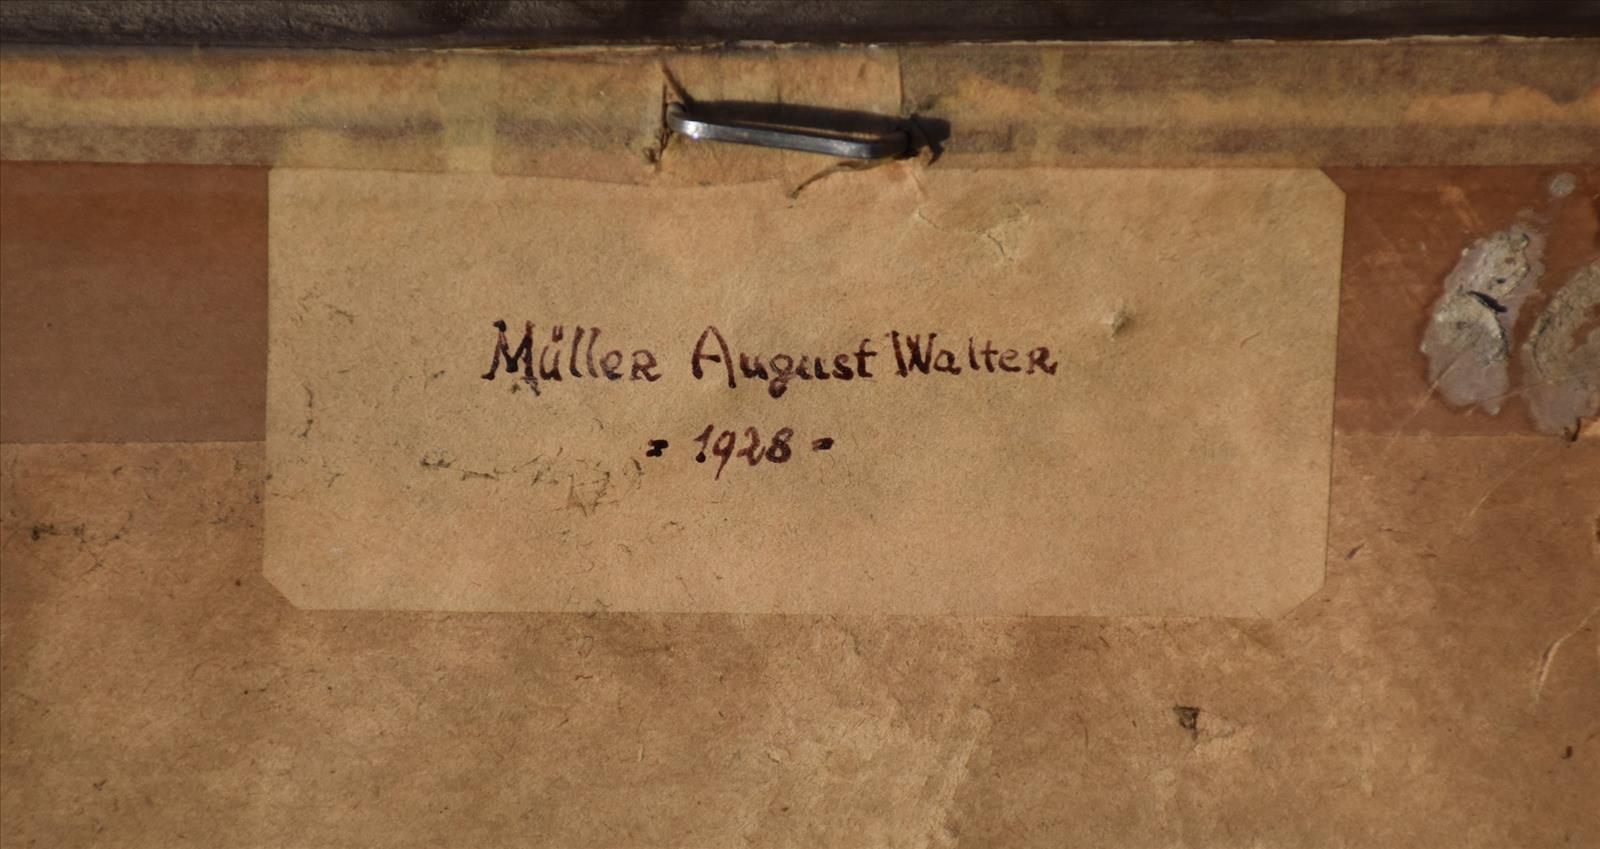 Müller August Walter
- 1928 -